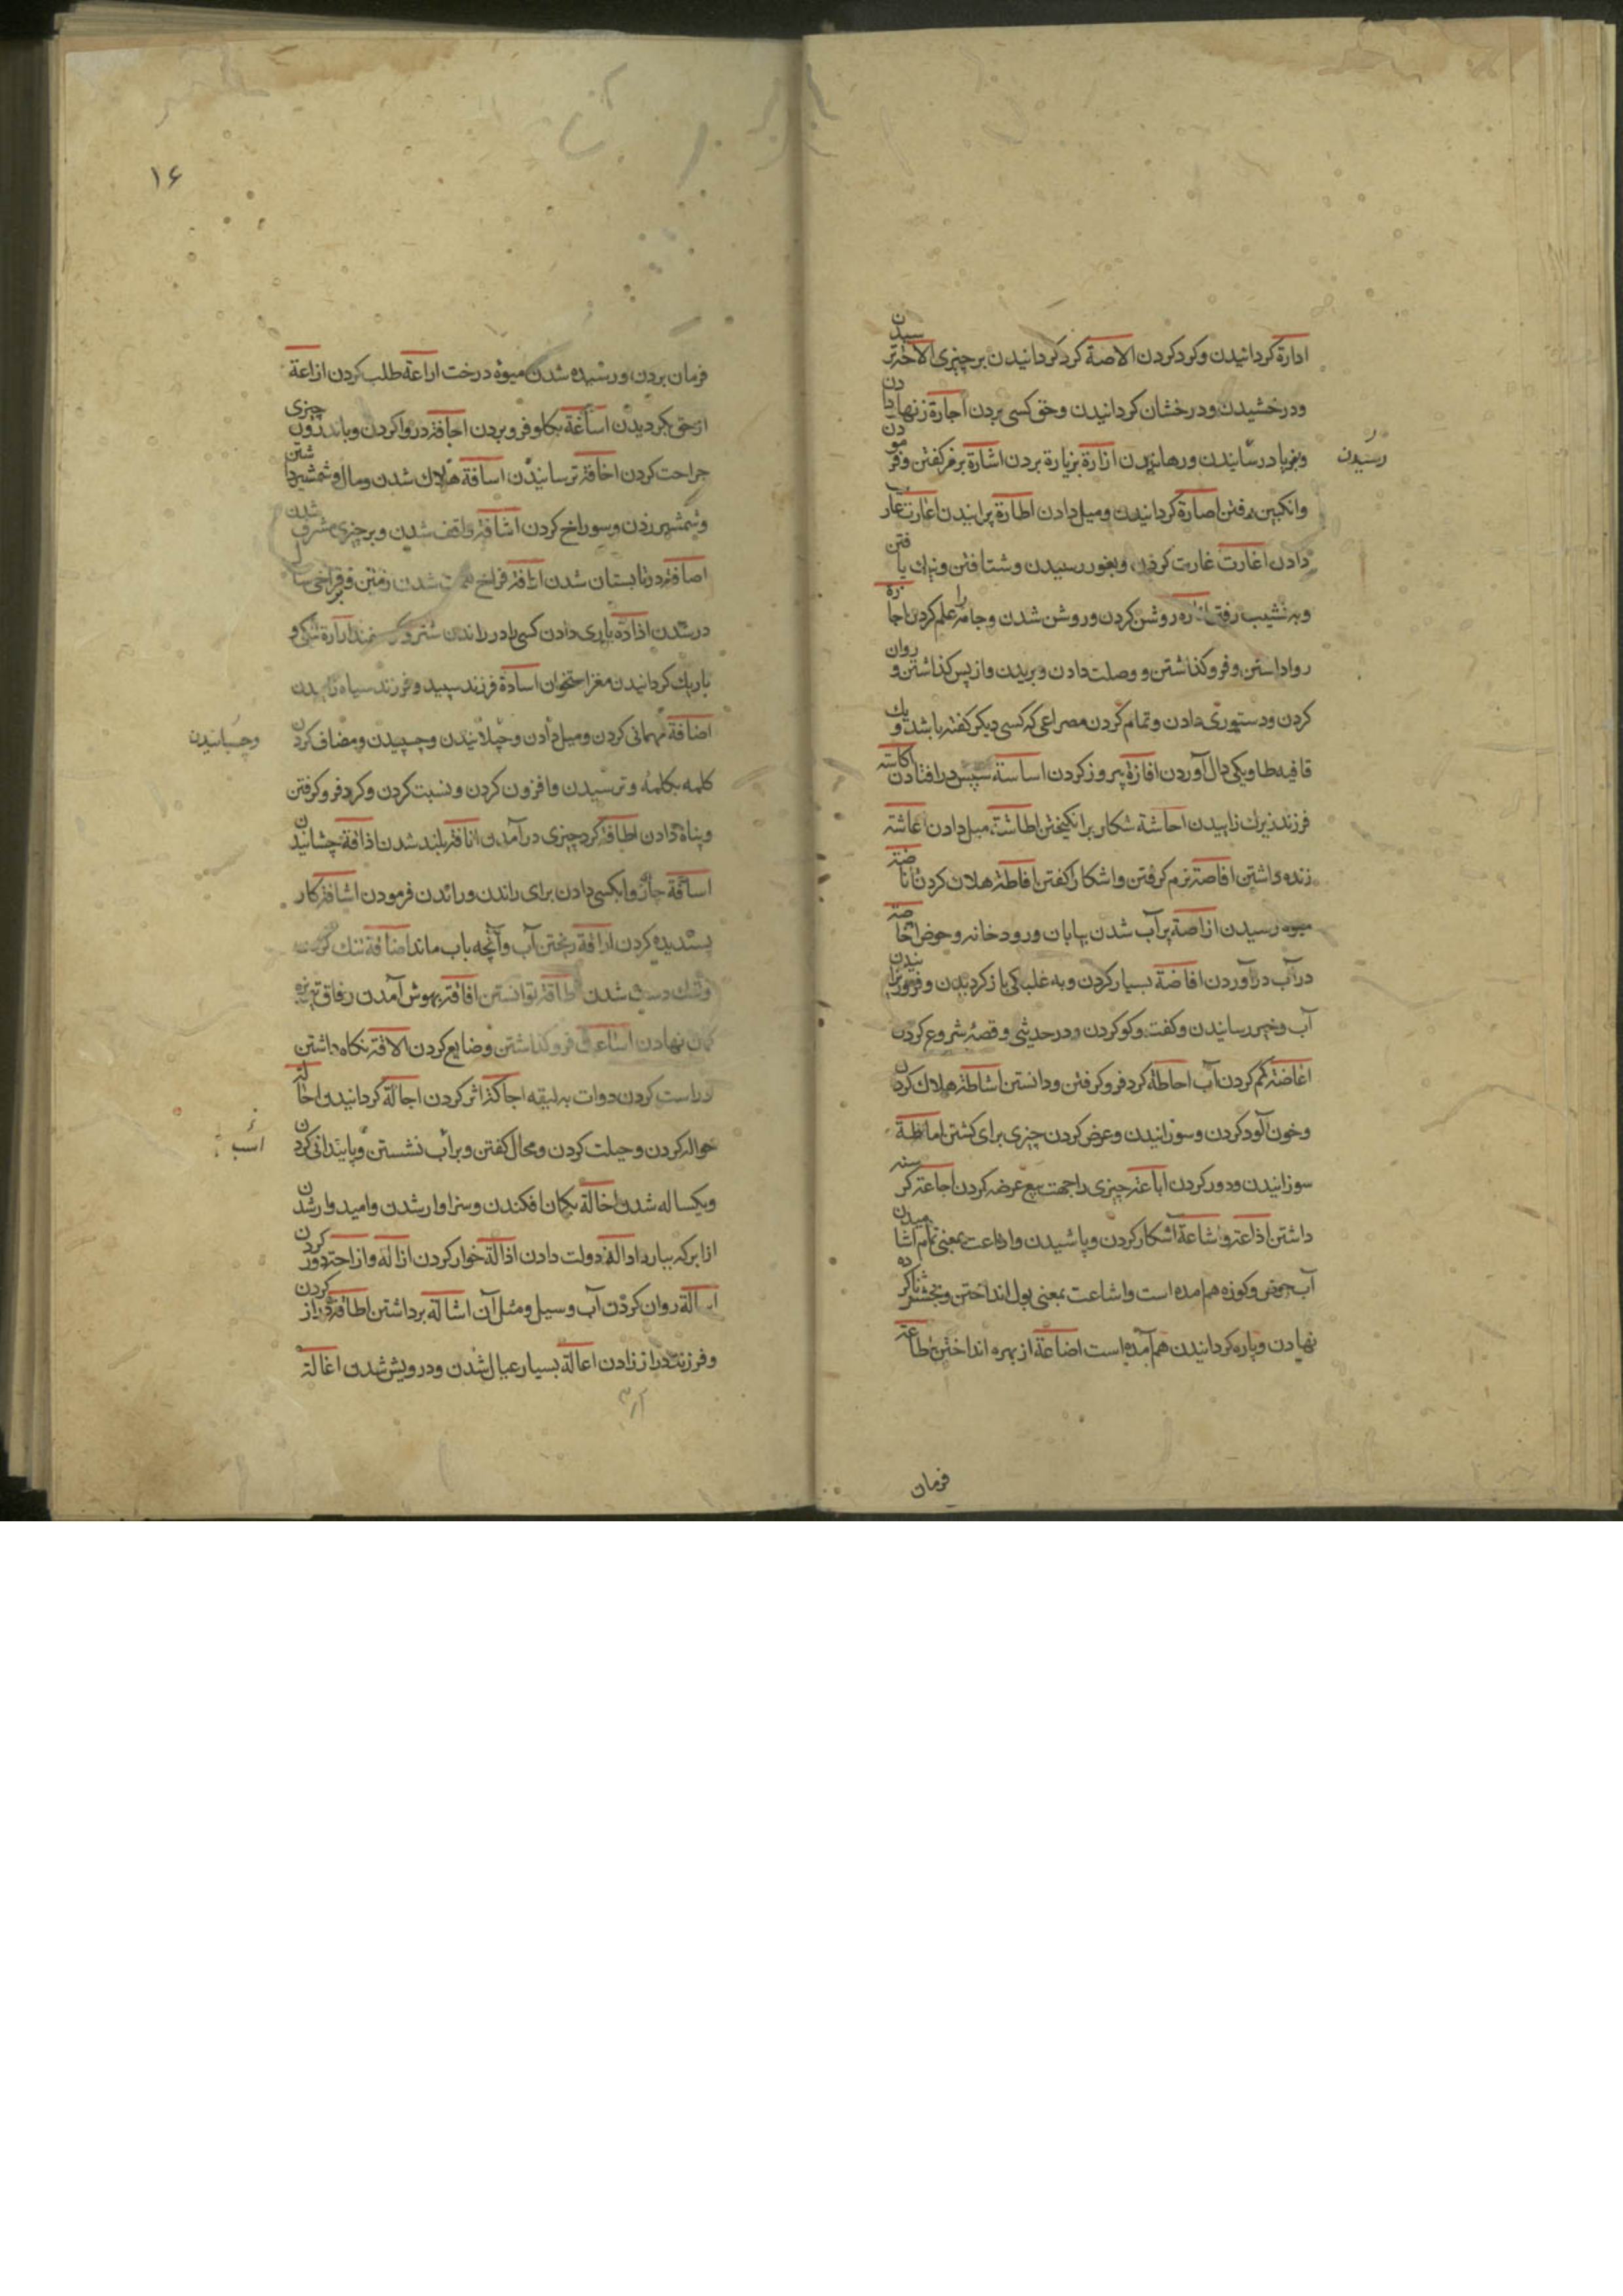 ادارة کردانیدن وکردکردن الاصة کردکردانیدن برچیزی الاخة ترسیدن
ودرخشیدن ودرخشان کردانیدن وحق کسی بردن اجارة زنهار دادن
وبفریاد رسانیدن ورهانیدن ازارة بزیارة بردن اشارة برمز کفتن وفرمودن
رسیدن
وانکبین رفتن اصارة کردانیدن ومیل دادن اطارة پرانیدن اعارت عار
دادن اغارت غارت کردن وبغور رسیدن وشتافتن ونیک یافتن
وبه نشیب رفتن روشن کردن وروشن شدن وجامه را علم کردن اجازة
رواداشتن وفروکذاشتن ووصلت دادن وبریدن وازپس کذاشتن وروان
کردن ودستوری دادن وتمام کردن مصراعی که کسی دیکر کفته باشد ویک
قافیه طا ویکی دال آوردن افازة پیروز کردن اساسة سپس درافتادن اکاسة
فرزند زیرک زاییدن احاشة شکار برانکیختن اطاشة میل دادن اعاشة
زنده داشتن افاصة نرم کرفتن واشکارا کفتن افاطة هلاک کردن
رسیدن اراضة پرآب شدن بیابان ورودخانه وحوض اخاضة
درآب درآوردن افاضة بسیار کردن وبه غلبکی باز کردیدن وفرورانیدن
آب وخبر رسانیدن وکفت وکو کردن ودر حدیثی وقصه شروع کردن
اغاضة کم کردن آب احاطة کرد فروکرفتن ودانستن اشاطة هلاک کردن
وخون آلود کردن وسوزانیدن وعرض کردن چیزی برای کشتن اماطة
سوزانیدن ودور کردن اباعة چیزی را جهت بیع عرضه کردن اجاعة کرسنه
داشتن اذاعة واشاعة آشکار کردن وپاشیدن واذاعت بمعنی تمام آشامیدن
آب حوض وکوزه هم امده است واشاعت بمعنی بول انداختن
نهادن وپاره کردانیدن هم آمده است اضاعة از بهره انداختن اطاعة
فرمان
۱۶
فرمان بردن ورسیده شدن میوه درخت اراعة طلب کردن ازاعة
ازحق بکردیدن اساغة بکلو فروبردن اجافة درواکردن وباندرون چیزی
جراحت کردن اخافة ترسانیدن اسافة هلاک شدن ومال وشمشیر داشتن
وشمشیر زدن وسوراخ کردن اشافة واقف شدن وبرچیزی مشرف شدن
اصافة درتابستان شدن ارافة فراخ شدن زمین
درشدن اذادة یاری دادن کسی را در راندن شتر
باریک کردانیدن مغز استخوان اسادة فرزند سپید وفرزند سیاه
اضافة مهمانی کردن ومیل دادن وچسپیدن ومضاف کردن
وچسپانیدن
کلمه بکلمه وترسیدن وافزون کردن ونسبت کردن وکرد فروکرفتن
وپناه دادن اطافة کرد چیزی درآمدن انافة بلند شدن اذاقة چشانیدن
اساقة چاروا بکسی دادن برای راندن وراندن فرمودن اشافة کار
پسندیده کردن اراقة ریختن آب وآنچه باب ماند اضاقة تنک کردن
وتنک دست شدن اطاقة توانستن افاقة بهوش آمدن
کمان نهادن فروکذاشتن وضایع کردن الاقة نکاه داشتن
راست کردن دوات به لیقه احاکة اثر کردن اجالة کردانیدن احالة
حواله کردن وحیلت کردن ومحال کفتن وبر اسب نشستن وپایندانی کردن
اسب
ویکساله شدن اخالة بکمان افکندن وسزاوار شدن وامیدوار شدن
ازابر که ببارد ادالة دولت دادن اذالة خوار کردن ازاله وازاحة دور کردن
اسالة روان کردن آب وسیل ومثل آن اشالة برداشتن اطالة دراز کردن
وفرزند دراز زادن اعالة بسیار عیال شدن ودرویش شدن اغالة